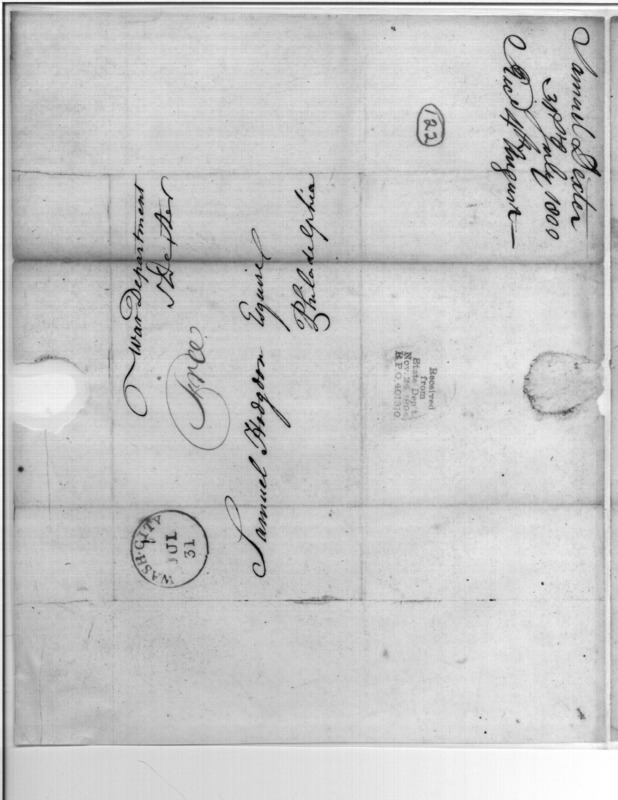 Samuel Dexter
31st July 1800
Recd 4th August
122
War Department
S Dexter
Free
Samuel Hodgdon Esquire
Philadelphia
WASH. CITY
JUL
31
Received
from
State Dep't
Nov.
R.P.O. 401310